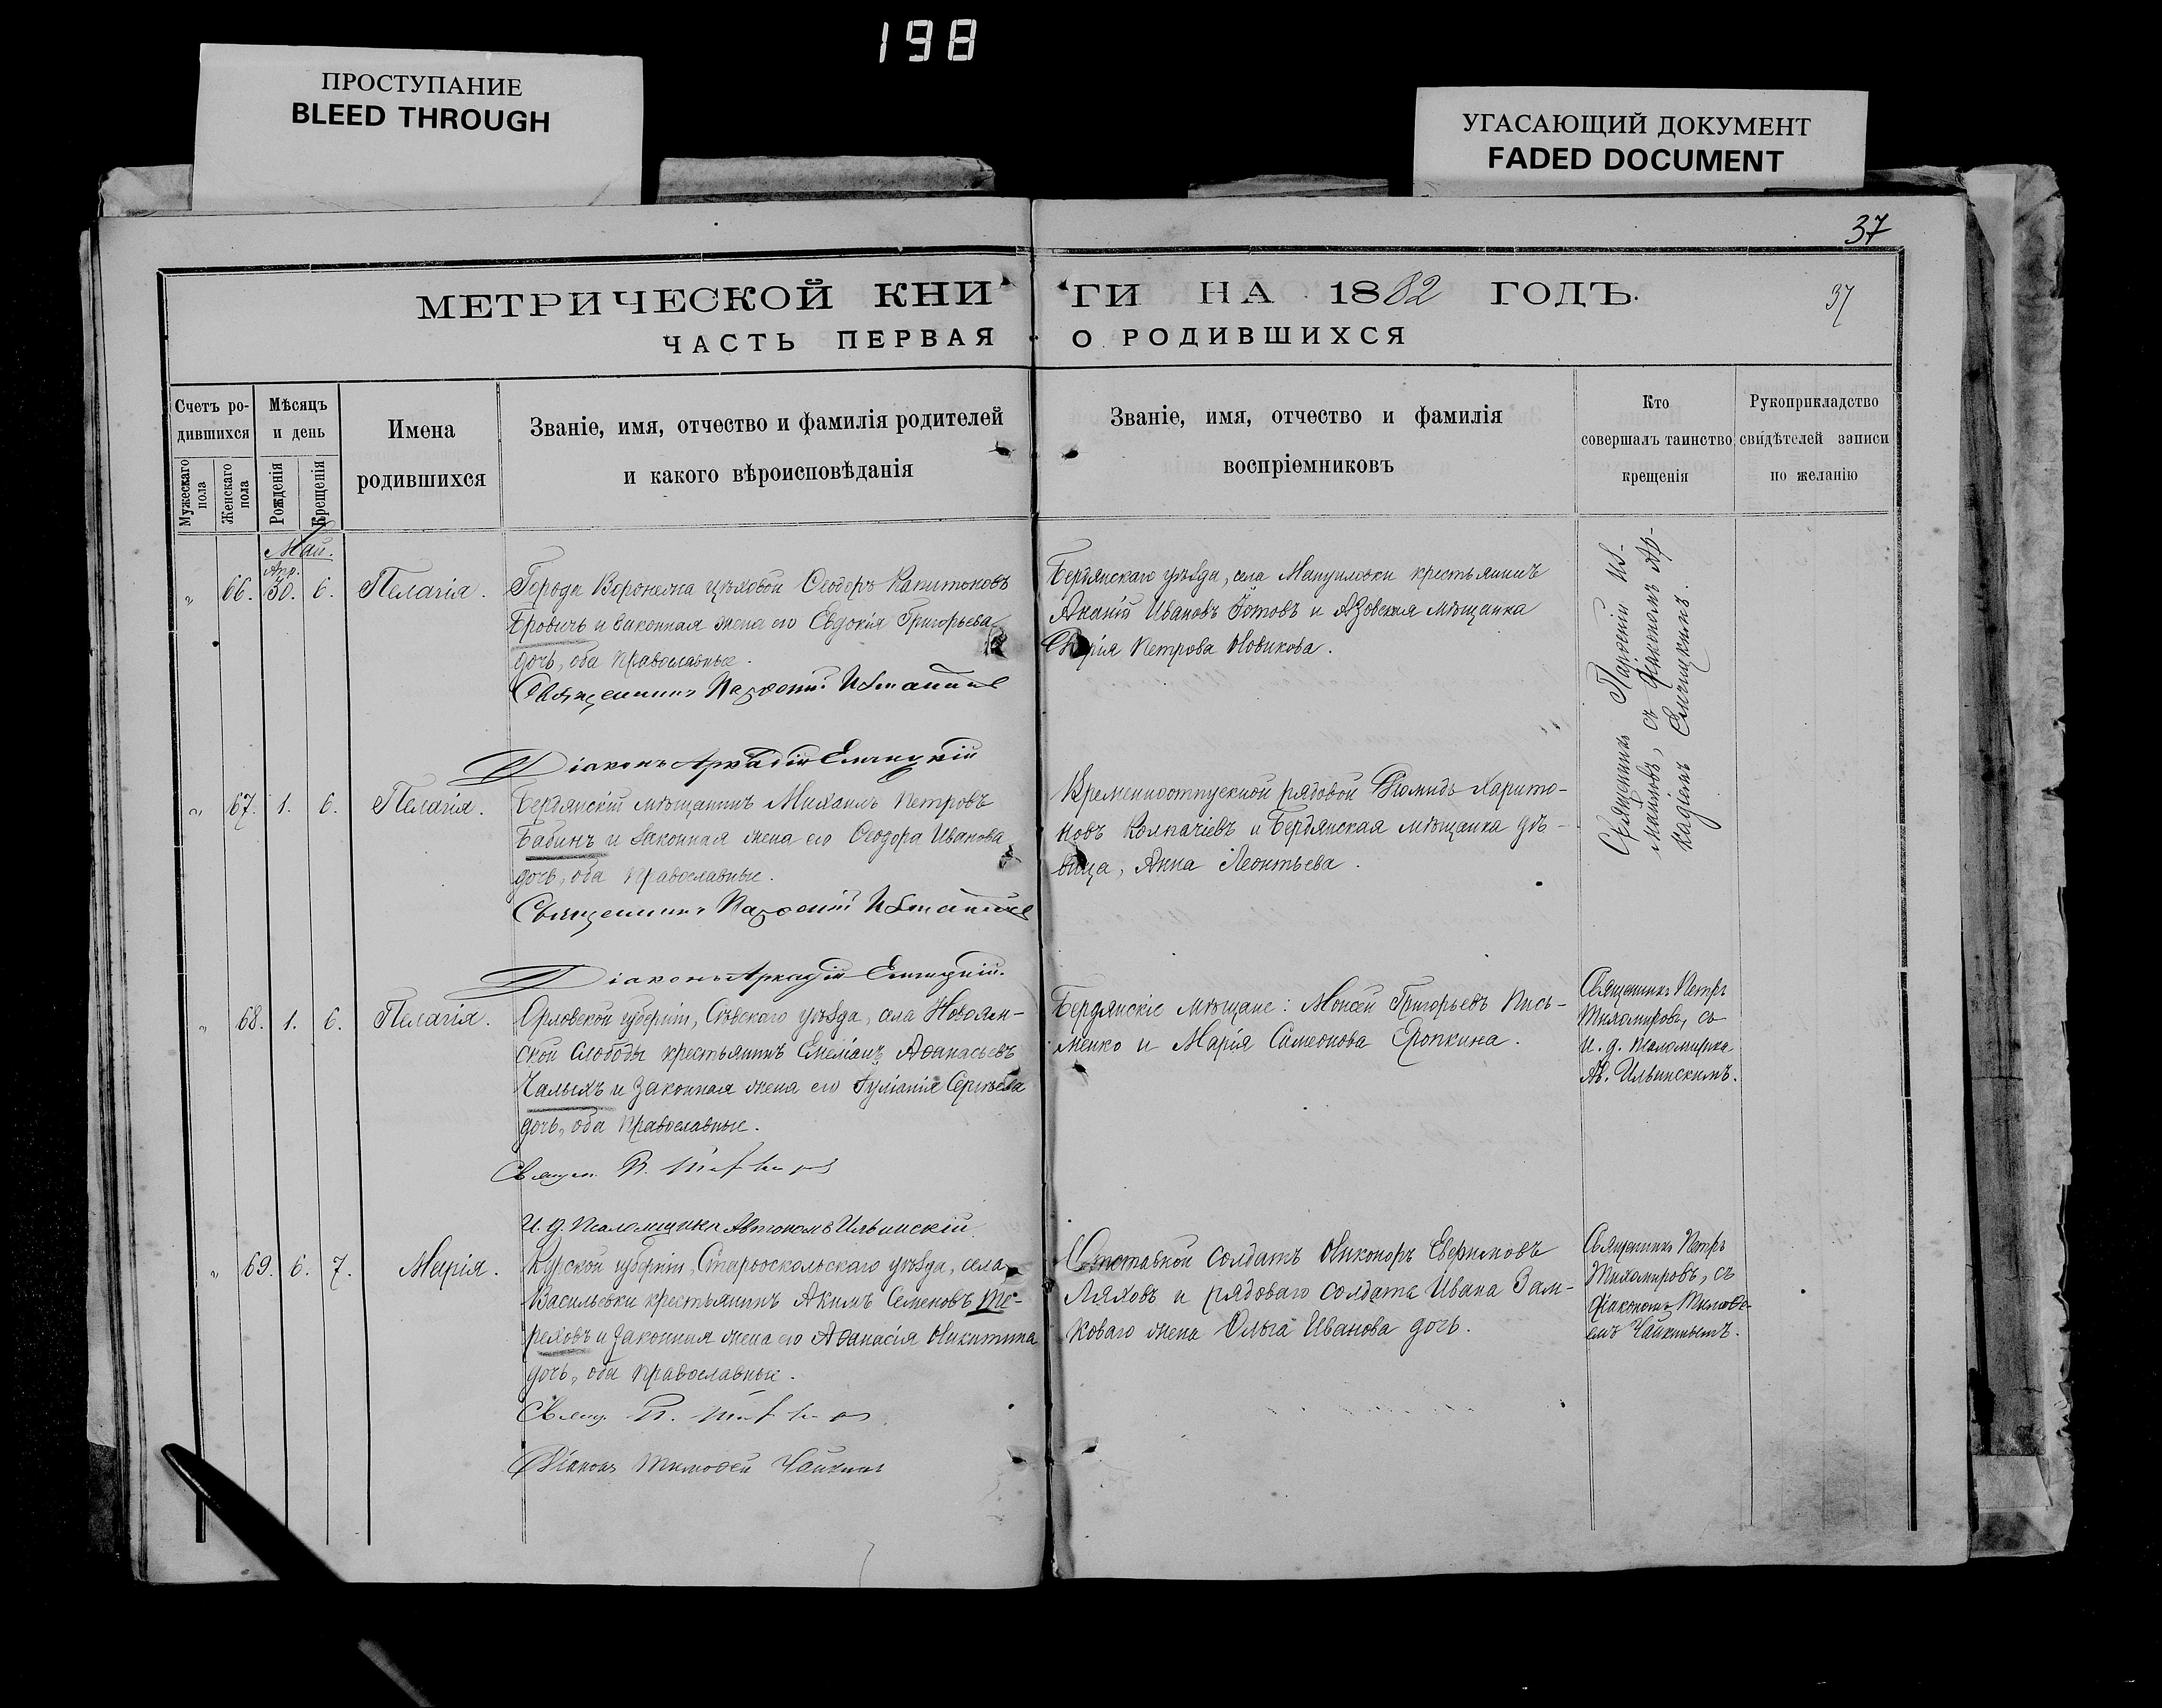 198
ПРОСТУПАНИЕ
BLEED THROUGH
УГАСАЮЩИЙ ДОКУМЕНТ
FADED DOCUMENT
37
МЕТРИЧЕСКОЙ КНИ
ГИ НА 1882 ГОДЪ.
37
ЧАСТЬ ПЕРВАЯ
О РОДИВШИХСЯ
Счетъ ро-
дившихся
Мужескаго
пола
Женскаго
пола
Мѣсяцъ
и день
Рожденія
Крещенія
Имена
родившихся
Званіе, имя, отчество и фамилія родителей
и какого вѣроисповѣданія
Званіе, имя, отчество и фамилія
воспріемниковъ
Кто
совершалъ таинство
крещенія
Рукоприкладство
свидѣтелей записи
по желанію
Май.
Апр.
„ 66. 30. 6. Пелагія.
Города Воронежа цѣховой Ѳеодоръ Капитоновъ
Бровичъ и законная жена его Евдокія Григорьева
дочь, оба православные.
Священникъ Парѳеній
Діаконъ Аркадій
Бердянскаго уѣзда, села Мануиловки крестьянинъ
Ананій Ивановъ и Азовская мѣщанка
Петрова Новикова.
Священникъ Парѳеній Из-
майловъ, съ діакономъ Ар-
кадіемъ
„ 67. 1. 6. Пелагія.
Бердянскій мѣщанинъ Михаилъ Петровъ
Бабинъ и законная жена его Ѳеодора Иванова
дочь, оба православные.
Священникъ Парѳеній
Діаконъ Аркадій
Временноотпускной рядовой Діомидъ Харито-
новъ Колпачіевъ и Бердянская мѣщанка дѣ-
вица, Анна Леонтьева.
„ 68. 1. 6. Пелагія.
Орловской губерніи, Сѣвскаго уѣзда, села Новоям-
ской слободы крестьянинъ Емеліанъ Аѳанасьевъ
Чалыхъ и законная жена его Іуліанія Сергѣева
дочь, оба православные.
Священ. П.
И. д. псаломщика Автономъ Ильинскій.
Бердянскіе мѣщане: Моисей Григорьевъ Пись-
менко и Марія Симеонова Еропкина.
Священникъ Петръ
Тихомировъ, съ
и. д. псаломщика
Ав. Ильинскимъ.
„ 69. 6. 7. Марія.
Курской губерніи, Старооскольскаго уѣзда, села
Васильевки крестьянинъ Акимъ Семеновъ Те-
реховъ и законная жена его Аѳанасія Никитина
дочь, оба православные.
Свящ. П.
Діаконъ Тимоѳей Чайкинъ
Отставной солдатъ Никоноръ Евѳимовъ
Ляховъ и рядоваго солдата Ивана Зам-
коваго жена Ольга Иванова дочь.
Священникъ Петръ
Тихомировъ, съ
діакономъ Тимоѳе-
емъ Чайкинымъ.